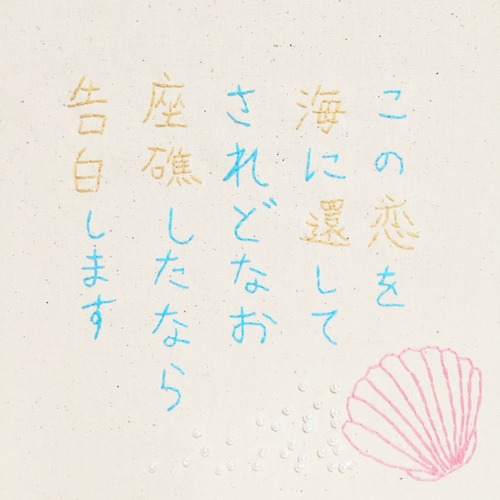 この恋を
海に還して
されどなお
座礁したなら
告白します